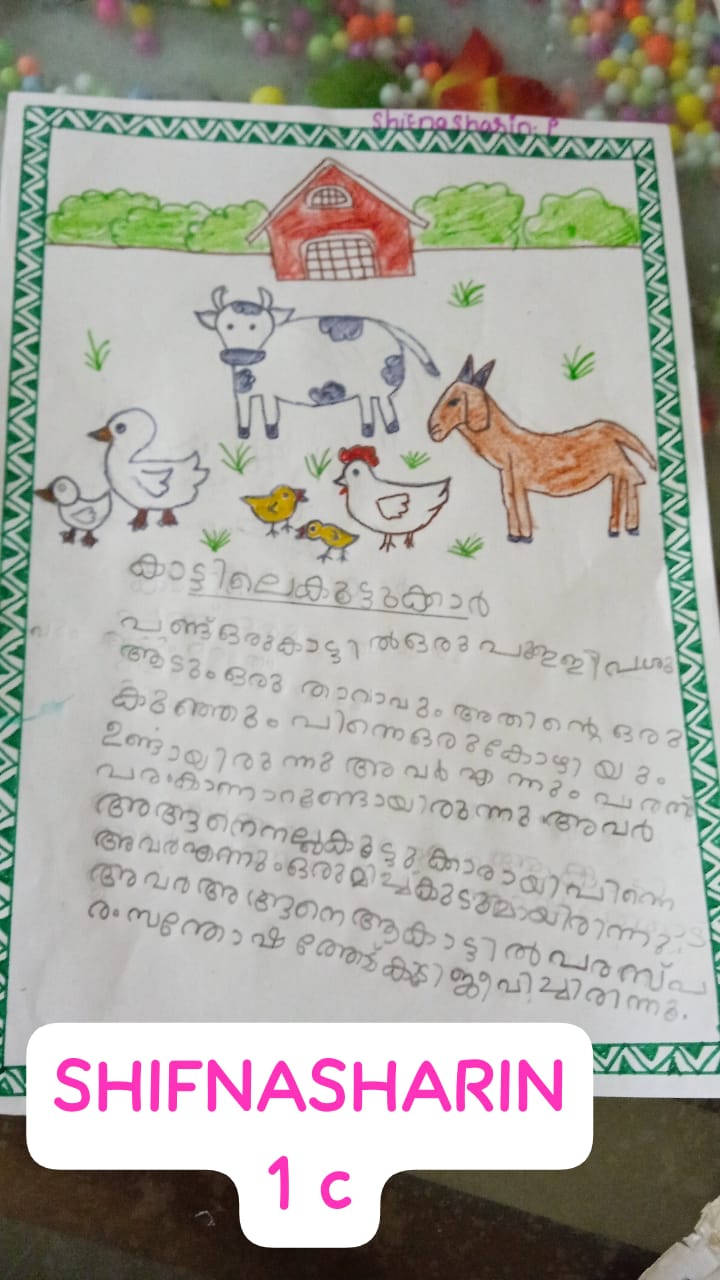 Shifnasharin. P
കാട്ടിലെകുട്ടുക്കാർ
പണ്ട് ഒരുകാട്ടിൽഒരു പുള്ളിപശു
ആടും ഒരു താറാവും അതിന്റെ ഒരു
കുഞ്ഞും പിന്നെഒരുകോഴിയും
ഉണ്ടായിരുന്നു അവർ എന്നും പരസ്
പരംകാണാറുണ്ടായിരുന്നു അവർ
അങ്ങനെനല്ലകുട്ടുക്കാരായിപിന്നെ
അവർഎന്നുംഒരുമിച്ച്കുടുമായിരിന്നു
അവർഅങ്ങനെ ആകാട്ടിൽ പരസ്പ
രംസന്തോഷത്തോട്കുടി ജീവിച്ചിരിന്നു.
SHIFNASHARIN
1 c